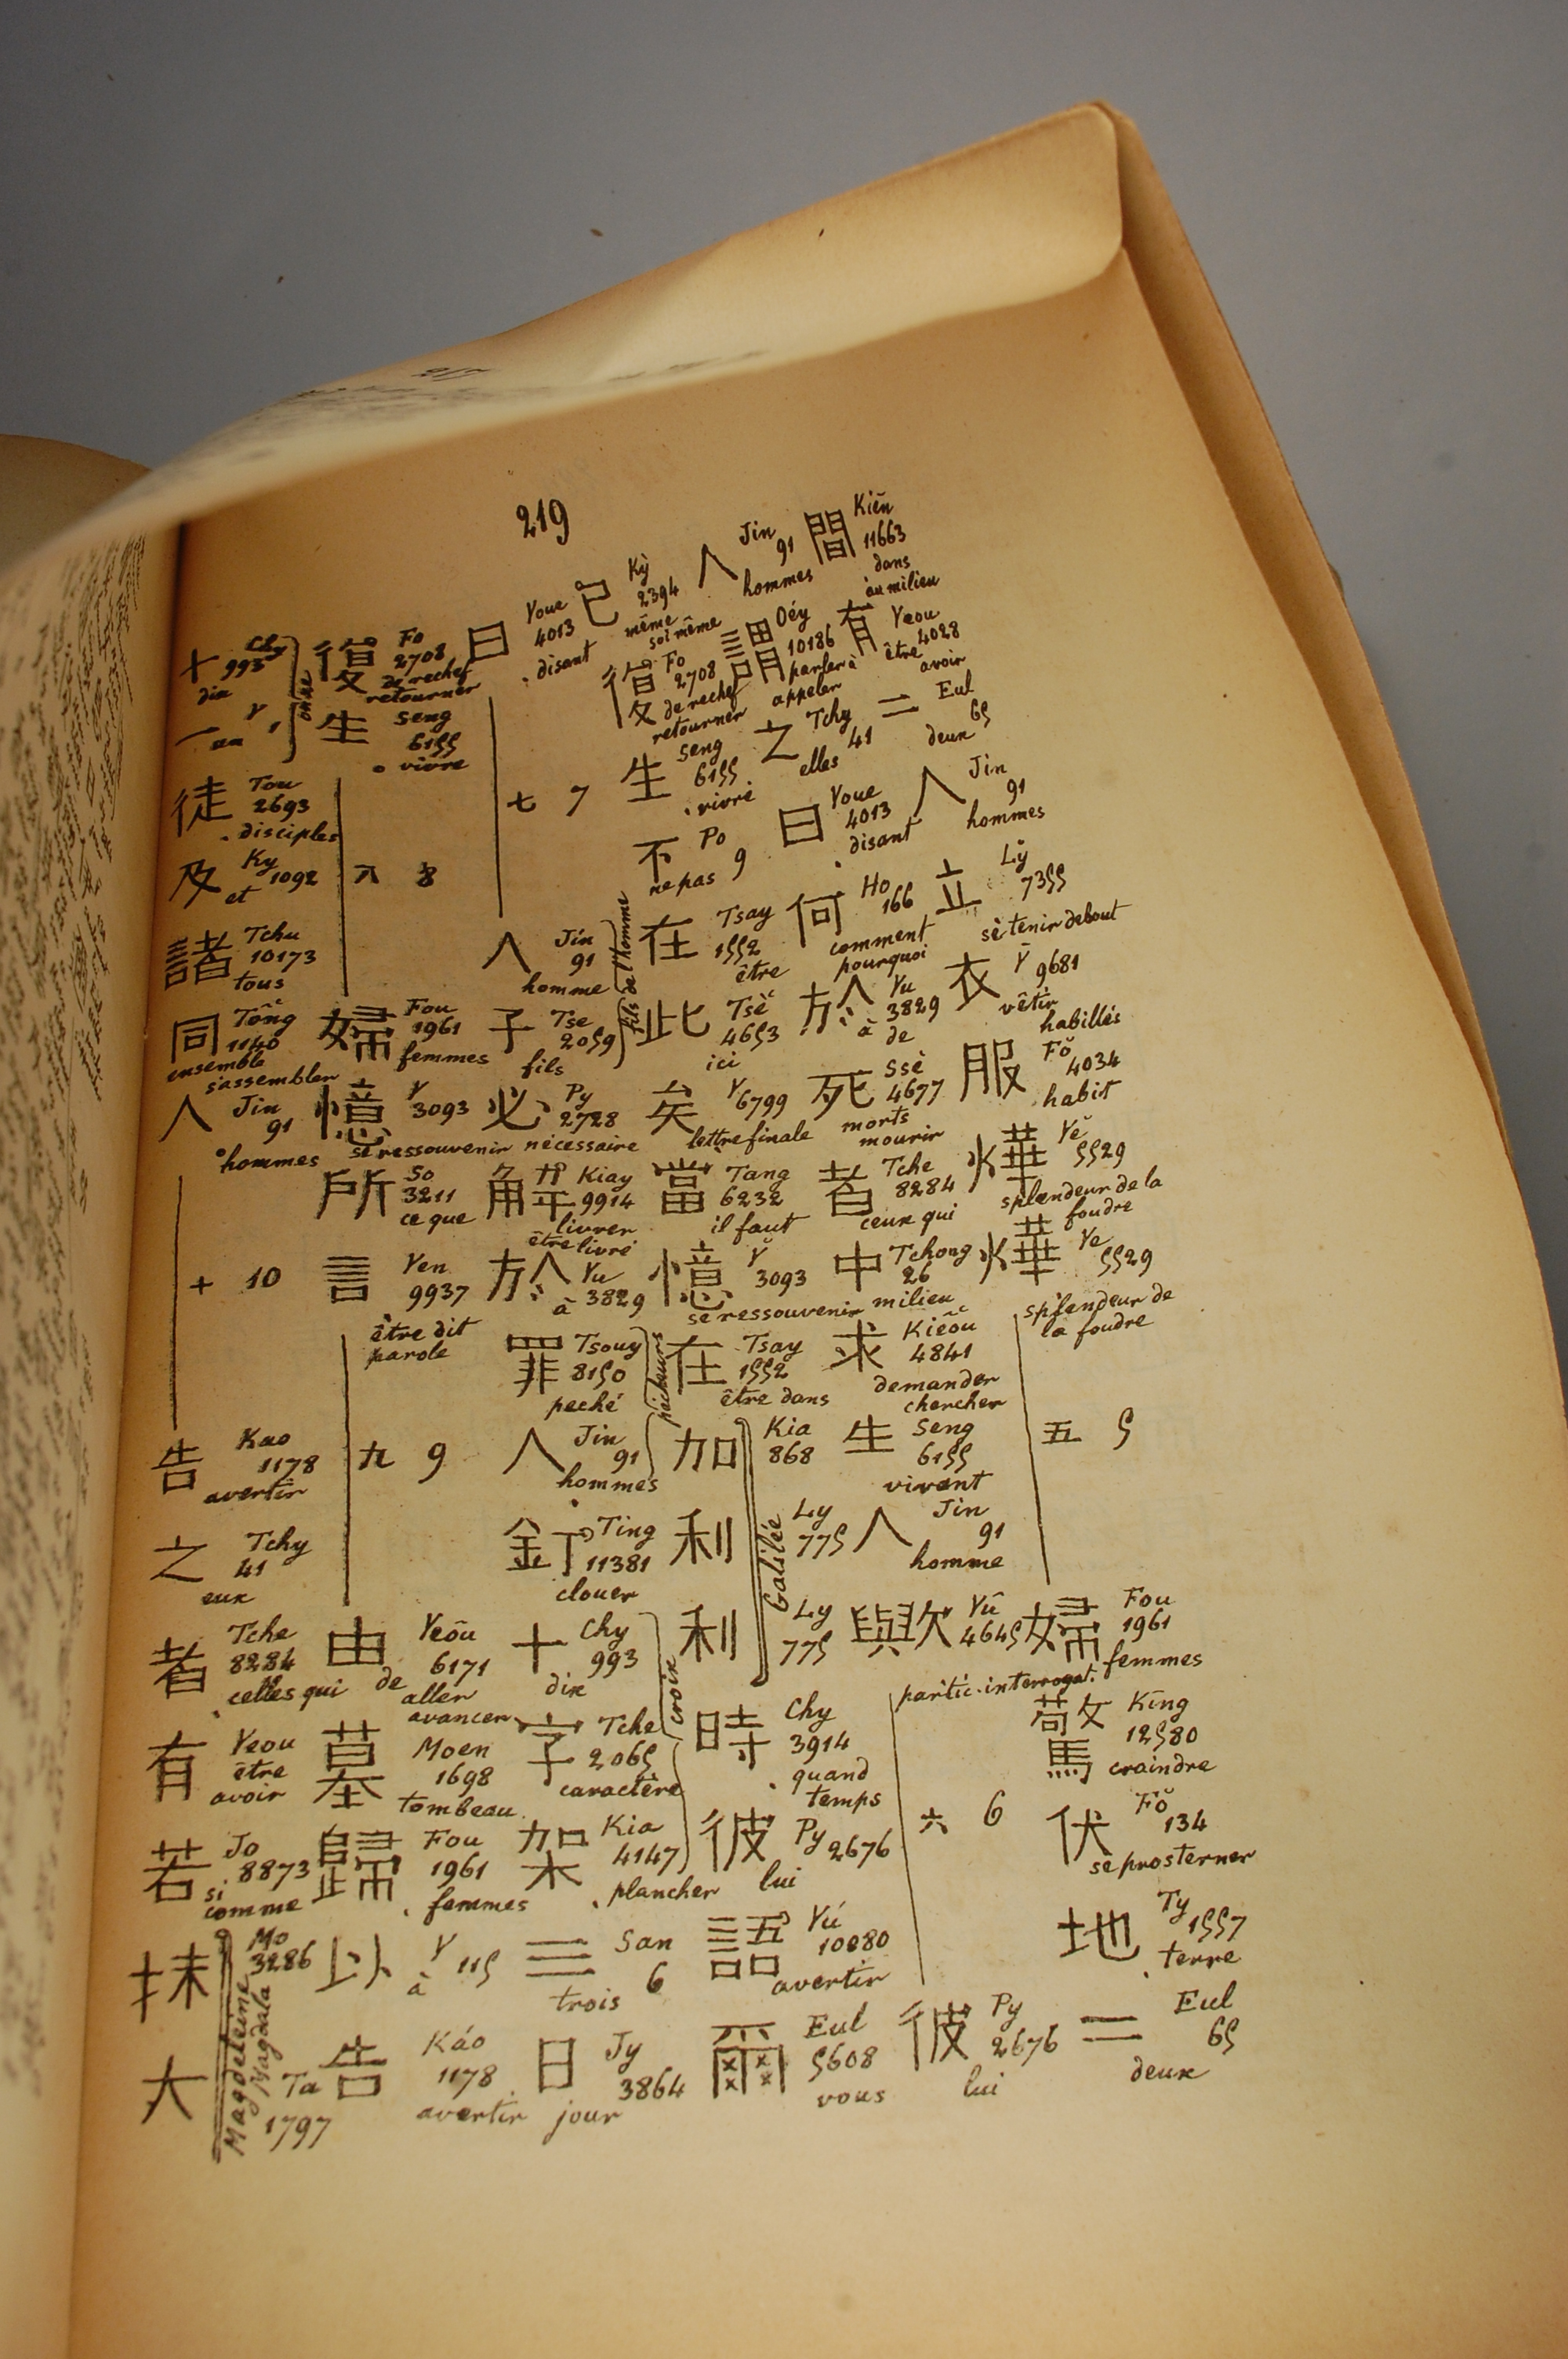 219
間 Kiēn 11663 dans au milieu
有 Yeou 4028 être avoir
二 Eul 65 deux
人 Jin 91 hommes
立 Lў 7355 se tenir debout
衣 Y 9681 vêtir habillés
服 Fŏ 4034 habit
燁 Yĕ 5529 splendeur de la foudre
燁 Ye 5529 splendeur de la foudre
五 5
婦 Fou 1961 femmes
驚 King 12580 craindre
伏 Fŏ 134 se prosterner
地 Ty 1557 terre
二 Eul 65 deux
人 Jin 91 hommes
謂 Oéy 10186 parler à appeler
之 Tchy 41 elles
曰 Youe 4013 disant
何 Ho 166 comment pourquoi
於 Yu 3829 à de
死 Ssè 4677 morts mourir
者 Tche 8284 ceux qui
中 Tchong 26 milieu
求 Kieôu 4841 demander chercher
生 Seng 6155 vivant
人 Jin 91 homme
歟 Yû 4645 partic. interrogat.
六 6
彼 Py 2676 lui
己 Kỳ 2394 même soi même
復 Fo 2708 de rechef retourner
生 Seng 6155 vivre
不 Po 9 ne pas
在 Tsay 1552 être
此 Tsè 4653 ici
矣 Y 6799 lettre finale
當 Tang 6232 il faut
憶 Y 3093 se ressouvenir
在 Tsay 1552 être dans
加 Kia 868
利 Ly 775
利 Ly 775
Galilée
時 Chy 3914 quand temps
彼 Py 2676 lui
語 Yú 10080 avertir
爾 Eul 5608 vous
曰 Youe 4013 disant
七 7
人 Jin 91 homme
子 Tse 2059 fils
fils de l'homme
必 Py 2728 nécessaire
解 Kiay 9914 livrer être livré
於 Yu 3829 à
罪 Tsouy 8150 peché
人 Jin 91 hommes
pécheurs
釘 Ting 11381 clouer
十 Chy 993 dix
字 Tche 2065 caractère
架 Kia 4147 plancher
croix
三 San 6 trois
日 Jy 3864 jour
復 Fo 2708 de rechef retourner
生 Seng 6155 vivre
八 8
婦 Fou 1961 femmes
憶 Y 3093 se ressouvenir
所 So 3211 ce que
言 Yen 9937 être dit parole
九 9
由 Yeôu 6171 de aller avancer
墓 Moen 1698 tombeau
歸 Fou 1961 femmes
以 Y 115 à
告 Káo 1178 avertir
十 Chy 993 dix
一 Y 1 un
onze
徒 Tou 2693 disciples
及 Ky 1092 et
諸 Tchu 10173 tous
同 Tông 1140 ensemble s'assembler
人 Jin 91 hommes
十 10
告 Kao 1178 avertir
之 Tchy 41 eux
者 Tche 8284 celles qui
有 Yeou être avoir
若 Jo 8873 si comme
抹 Mo 3286
大 Ta 1797
Magdeleine Magdala